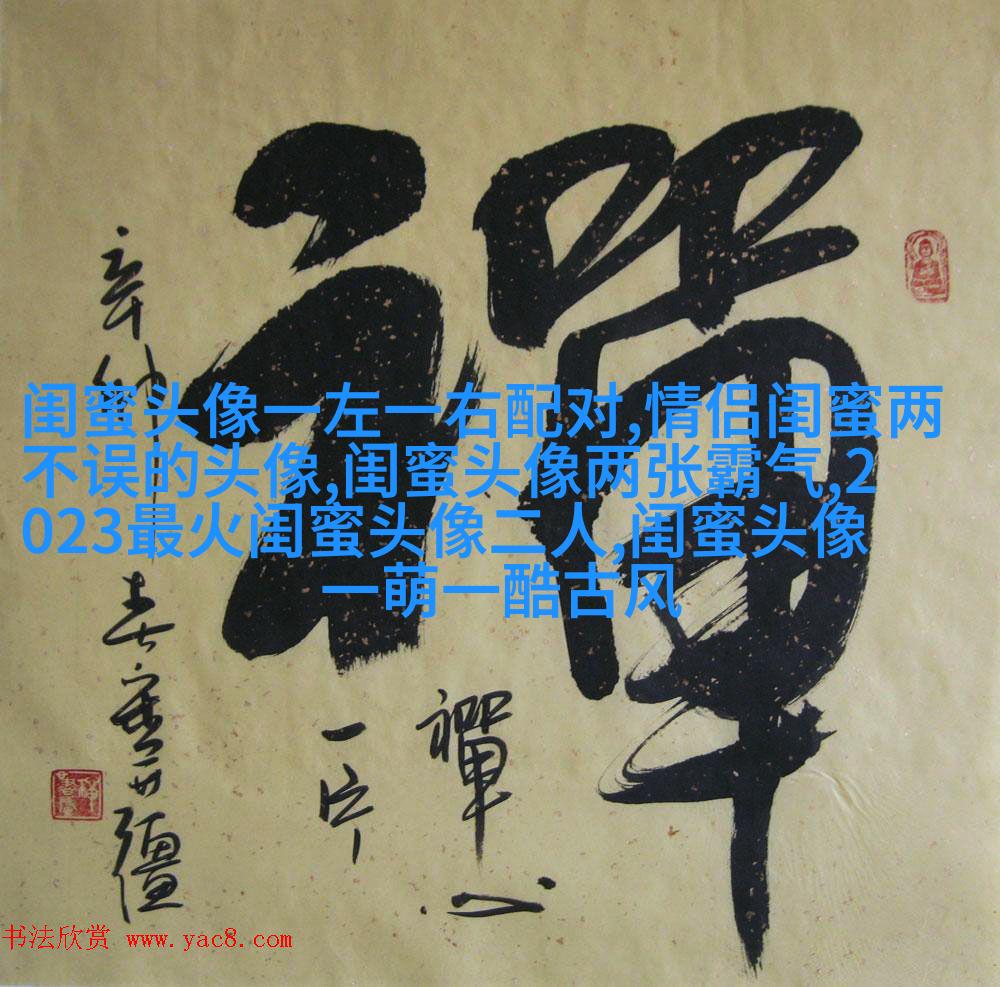 禪
禪心
一片
闺蜜头像一左一右配对,情侣闺蜜两
不误的头像,闺蜜头像两张霸气,2
023最火闺蜜头像二人,闺蜜头像
一萌一酷古风
书法欣赏 www.yac8.com